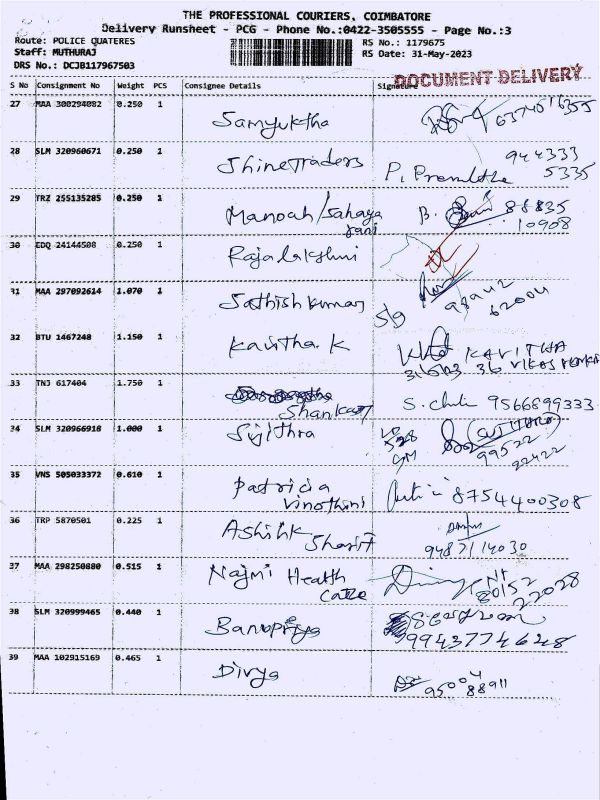 THE PROFESSIONAL COURIERS, COIMBATORE
Delivery Runsheet - PCG - Phone No.:0422-3505555 - Page No.:3
Route: POLICE QUATERES
RS No.: 1179675
Staff: MUTHURAJ
RS Date: 31-May-2023
DRS No.: DCJB117967503
DOCUMENT DELIVERY
S No Consignment No Weight PCS Consignee Details Signature
27 MAA 300294082 0.250 1
Samyuktha
28 SLM 320960671 0.250 1
Shine Traders P. Premlatha 944333
5335
29 TRZ 255135285 0.250 1
Manoah/Sahaya B. 88835
rani 10908
30 EDQ 24144508 0.250 1
Rajalakshmi
31 MAA 297092614 1.070 1
Sathish kumar S/9 98942
62004
32 BTU 1467248 1.150 1
Kavitha. K KAVITHA
36 VIKAS
33 TNJ 617404 1.750 1
Shankar 9566899333
34 SLM 320966918 1.000 1
Sujithra (SUJITHRA)
99522
22422
35 VNS 505033372 0.610 1
Patricia 8754400308
Vinothini
36 TRP 5870501 0.225 1
Ashihk
9487114030
37 MAA 298250880 0.515 1
Najmi Health 80152
care 22028
38 SLM 320999465 0.440 1
Banupriya 9943774628
39 MAA 102915169 0.465 1
Divya
95004
88911